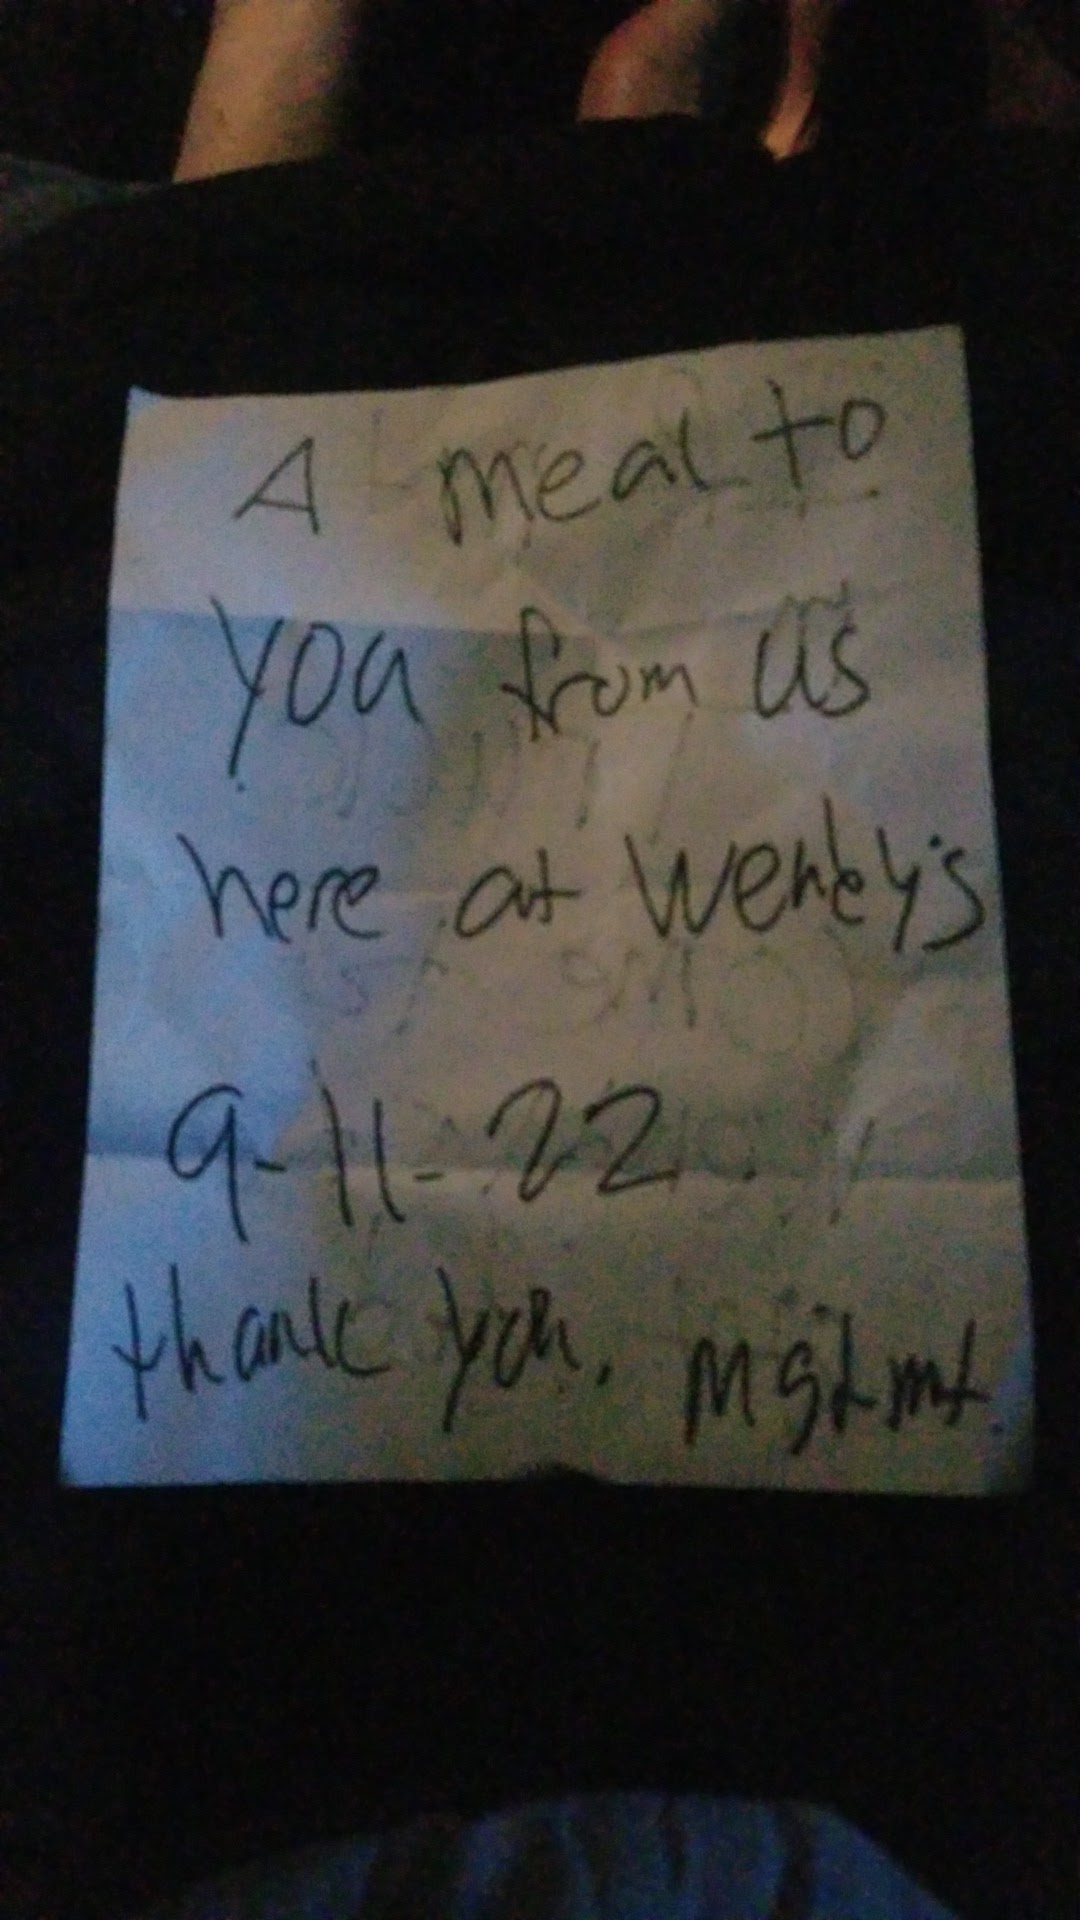 A meal to
you from us
here at Wendy's
9-11-22
thank you. mgtmt.